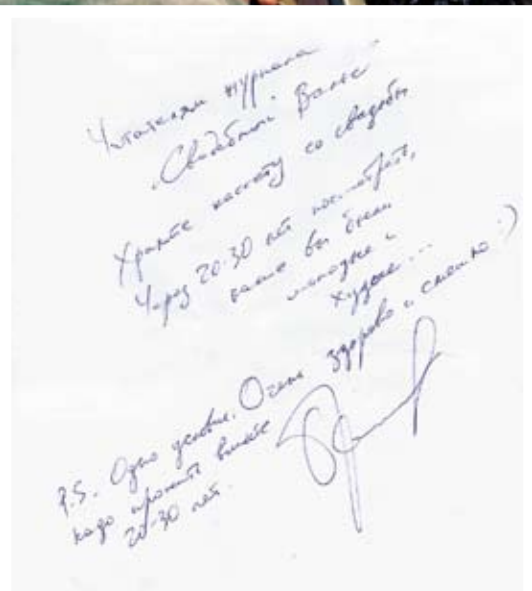 Читателям журнала
„Свадебный Вальс"
Храните кассету со свадьбы
Через 20-30 лет посмотрите,
какие вы были
молодые и
худые...
Очень здорово и смешно :)
P.S. Одно условие.
надо прожить вместе
20-30 лет.